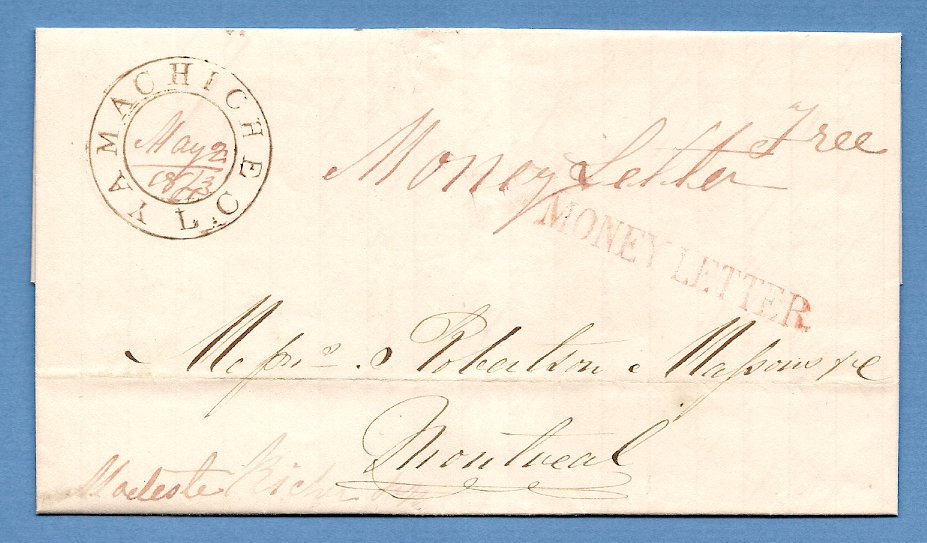 YAMACHICHE L.C.
May 2
Free
Money Letter
MONEY LETTER
Messrs. Robertson Massons & C
Montreal
Modeste Richer